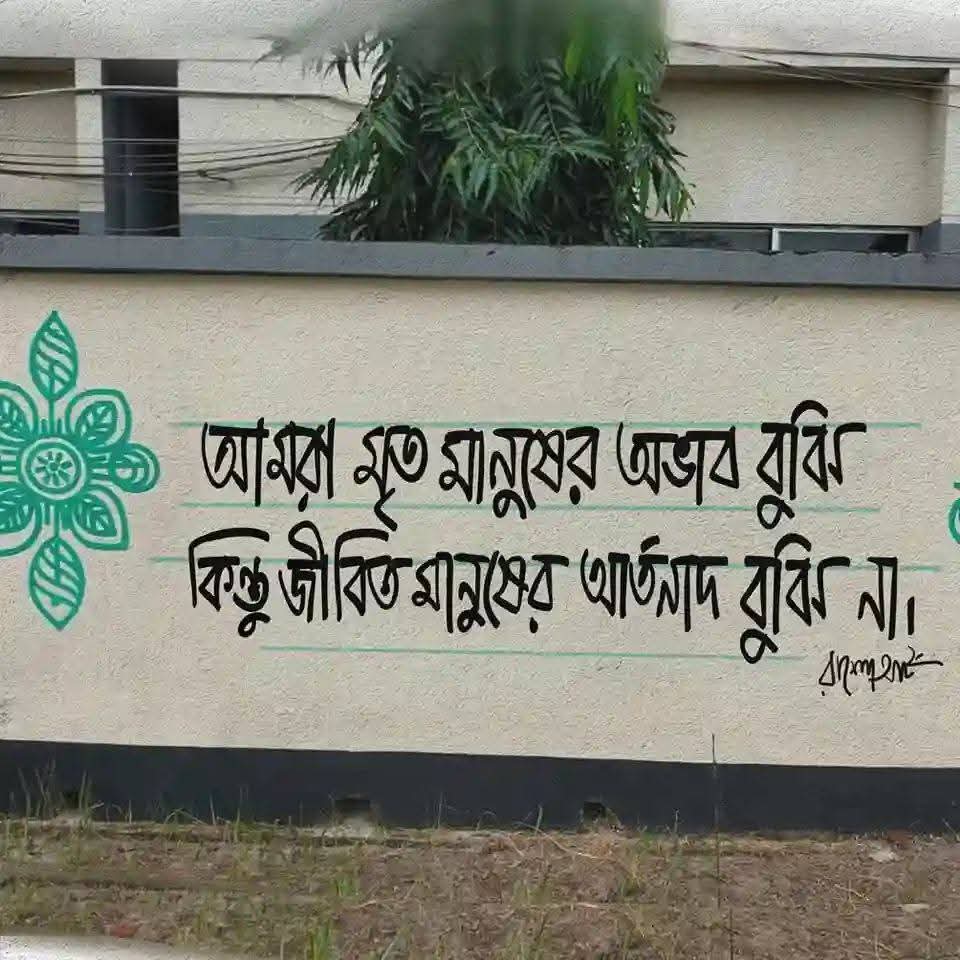 আমরা মৃত মানুষের অভাব বুঝি
কিন্তু জীবিত মানুষের আর্তনাদ বুঝি না।